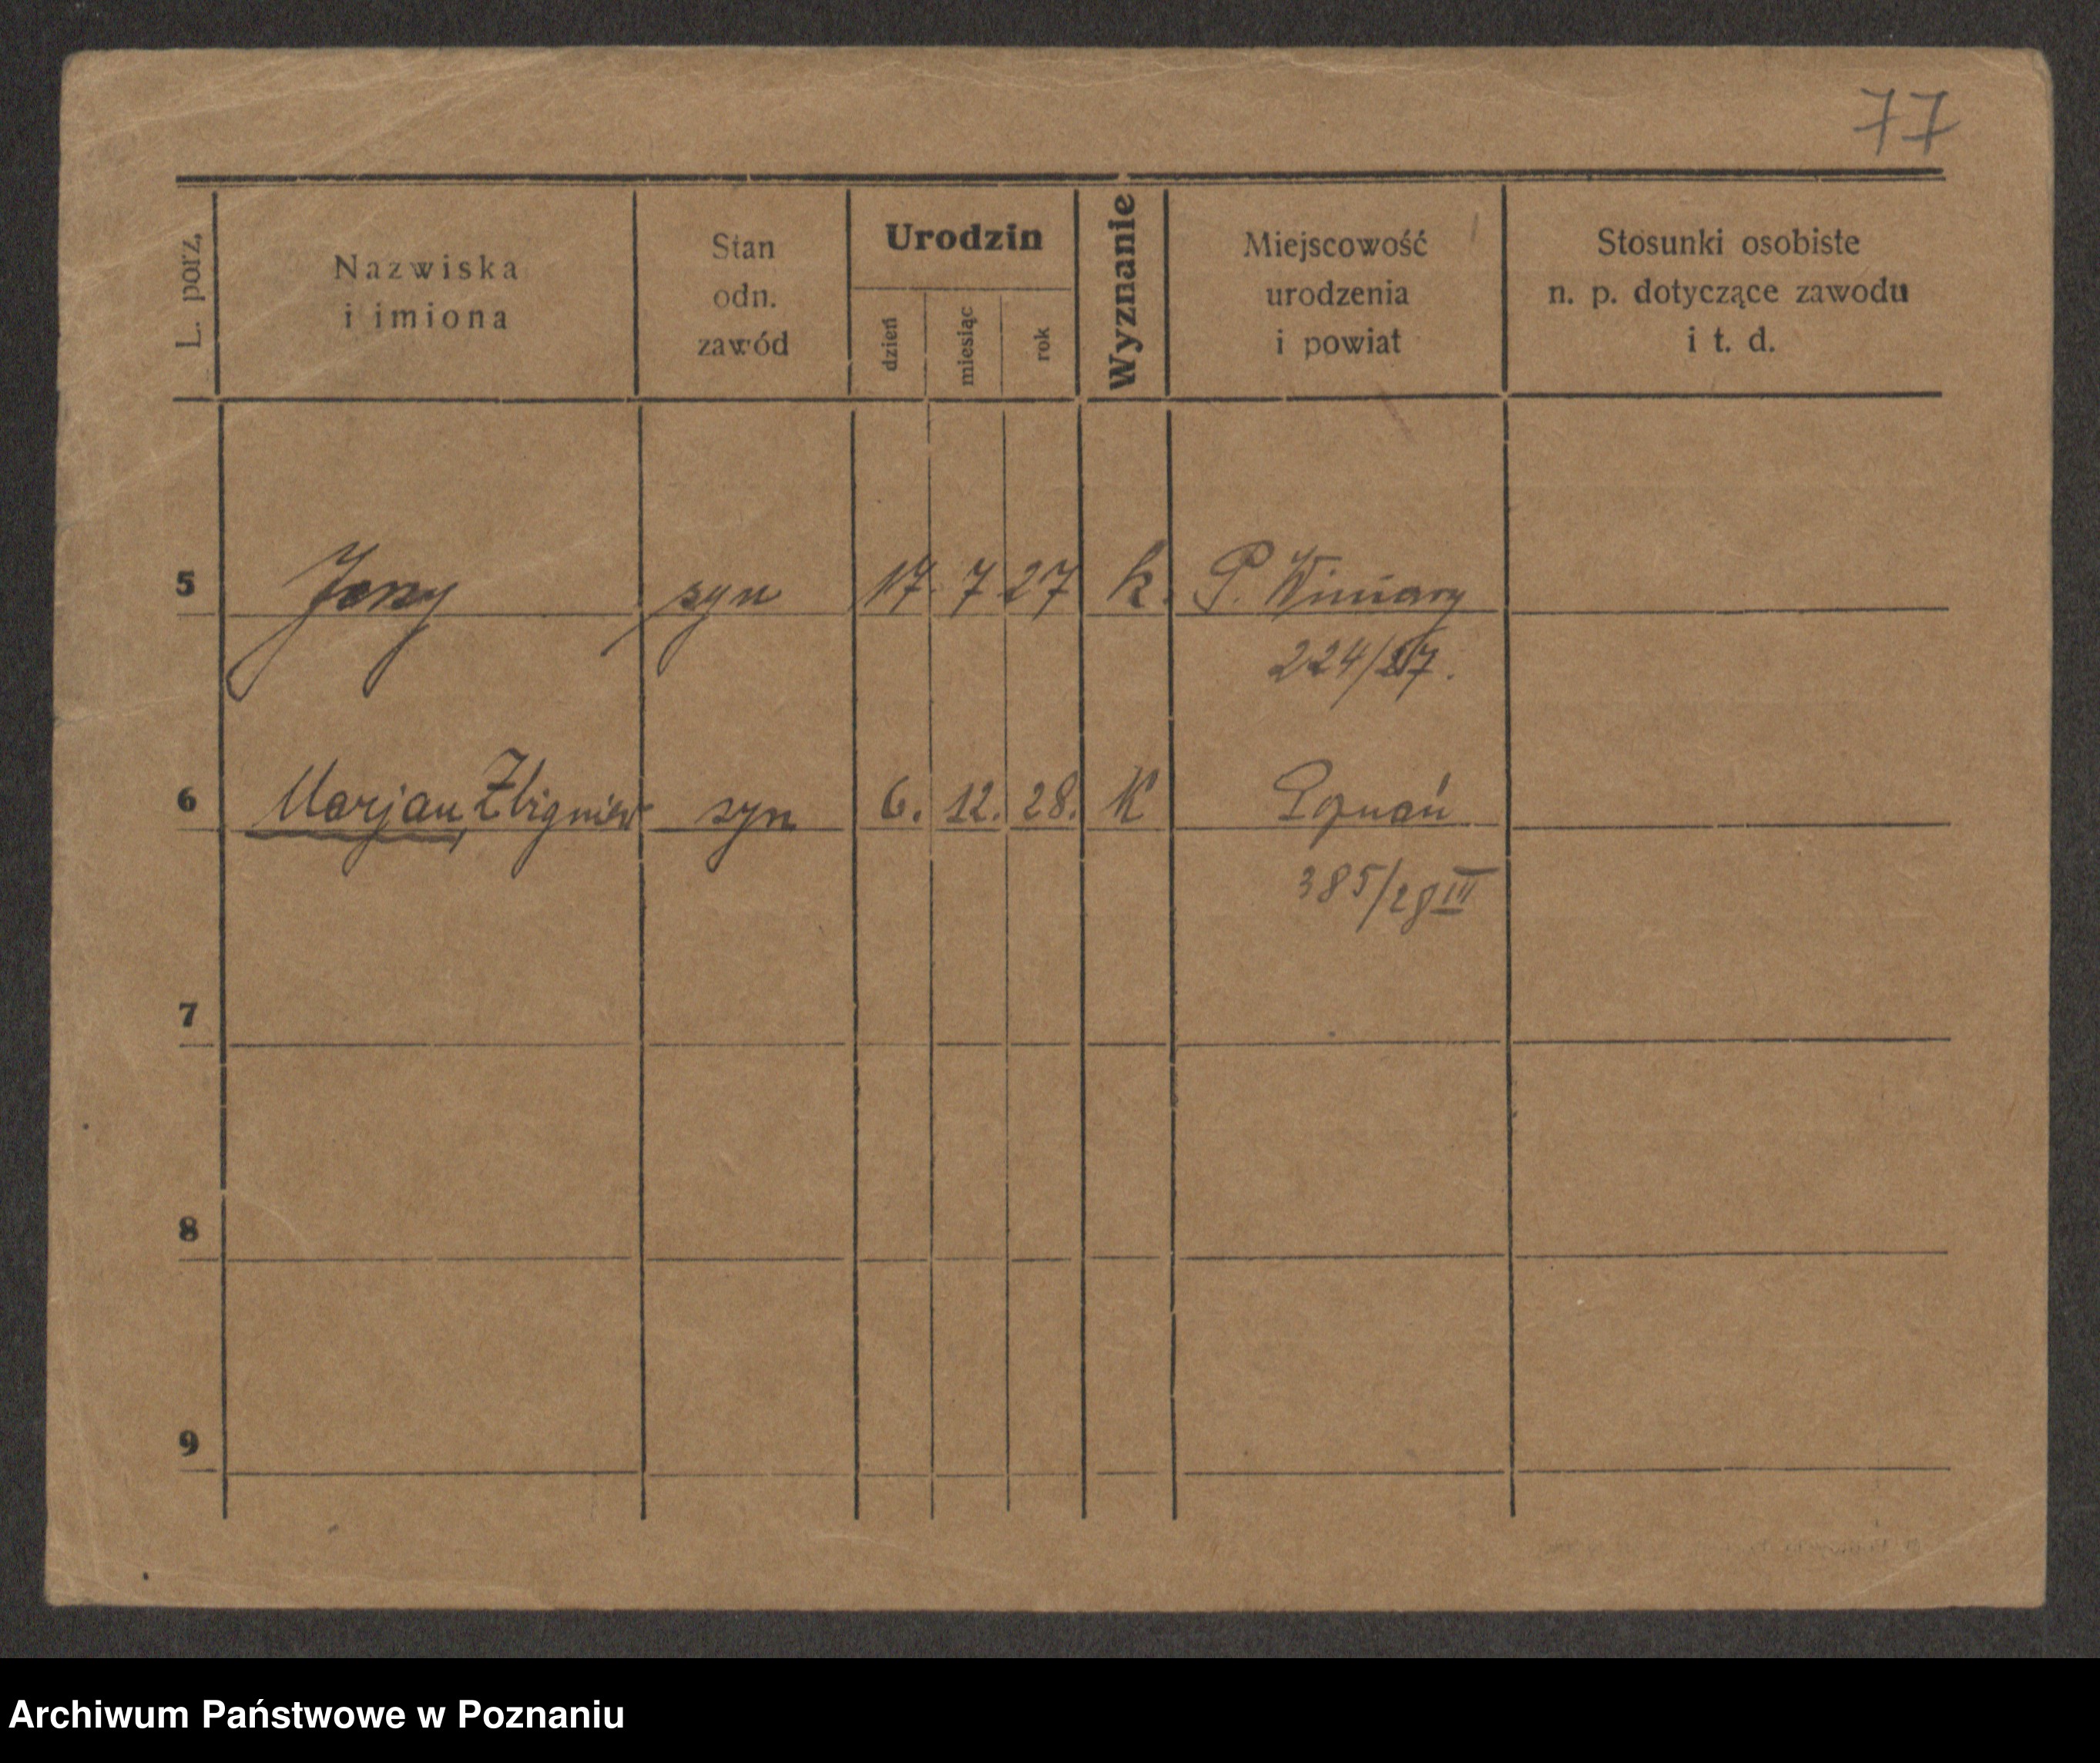 77
L. porz.
Nazwiska
i imiona
Stan
odn.
zawód
Urodzin
dzień
miesiąc
rok
Wyznanie
Miejscowość
urodzenia
i powiat
Stosunki osobiste
n. p. dotyczące zawodu
i t. d.
5 Jerzy syn 17. 7 27 k. P. Winiary
224/27.
6 Marjan, Zbigniew syn 6. 12. 28. K Poznań
385/28 III
7
8
9
Archiwum Państwowe w Poznaniu